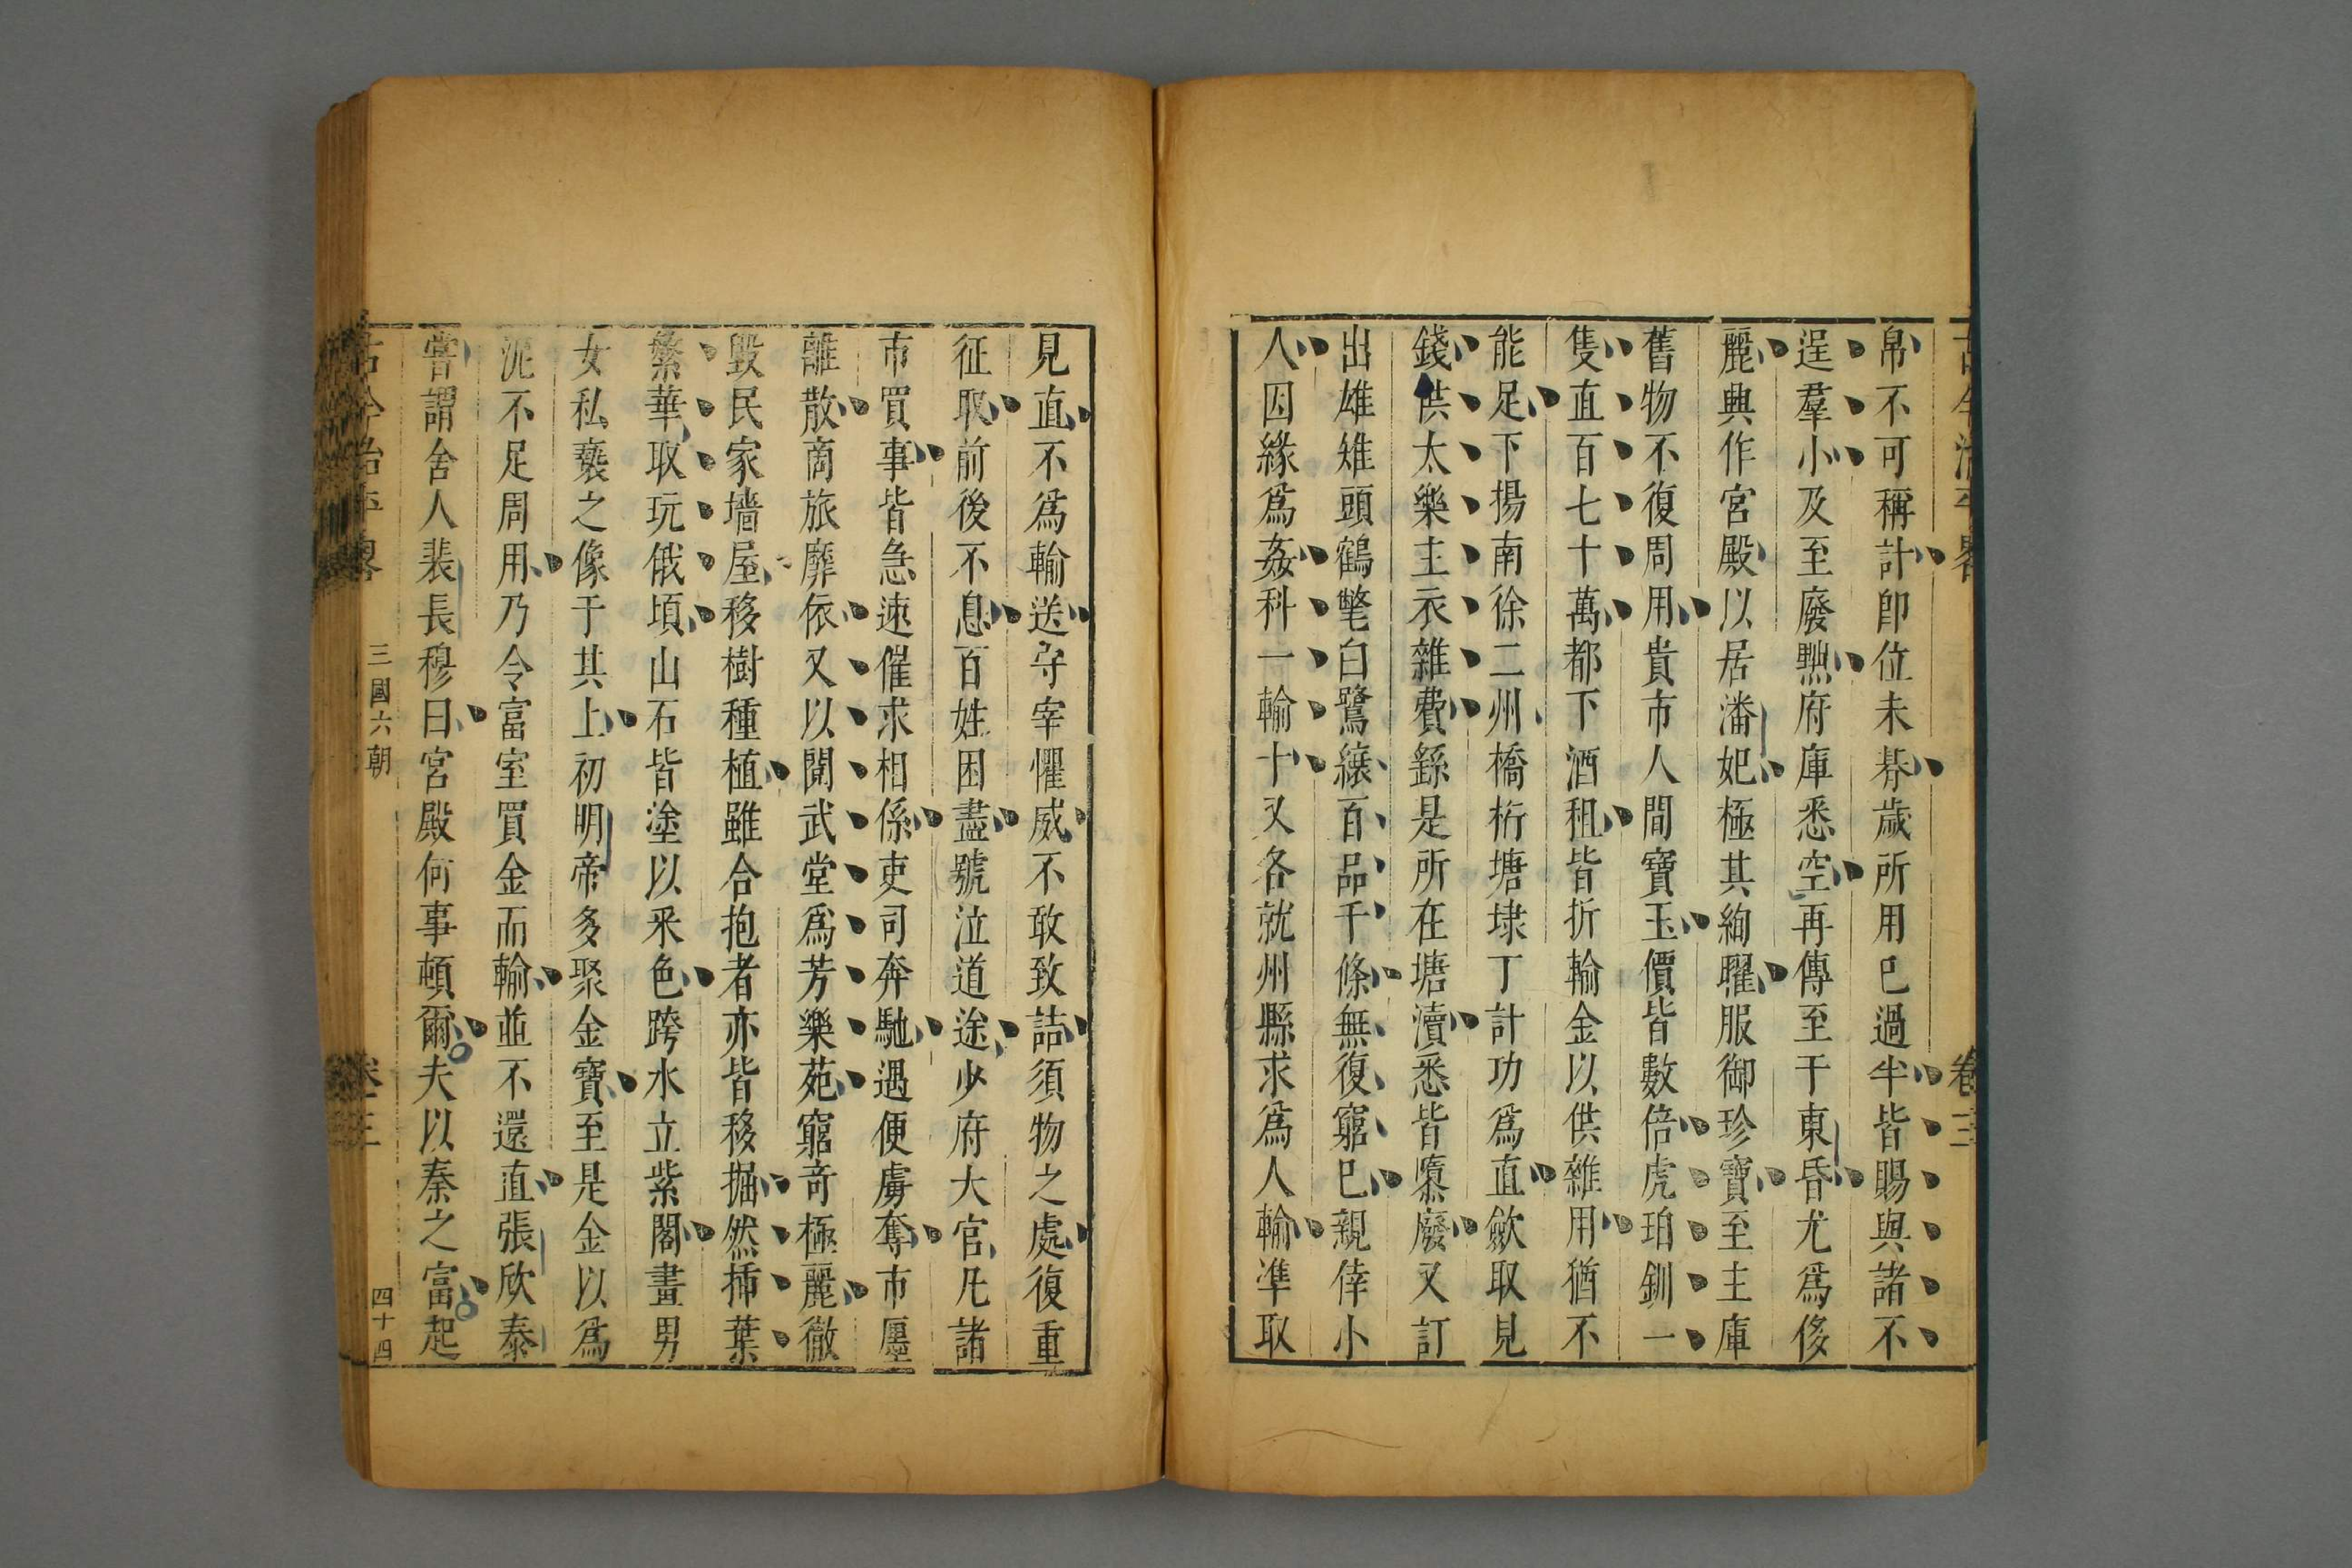 古今治平畧
卷三
帛不可稱計卽位未朞歲所用已過半皆賜與諸不
逞羣小及至廢黜府庫悉空再傳至于東昏尤爲侈
麗興作宮殿以居潘妃極其絢曜服御珍寶至主庫
舊物不復周用貴市人間寶玉價皆數倍虎珀釧一
隻直百七十萬都下酒租皆折輸金以供雜用猶不
能足下揚南徐二州橋桁塘埭丁計功爲直歛取見
錢供太樂主衣雜費繇是所在塘瀆悉皆隳廢又訂
出雄雉頭鶴氅白鷺縗百品千條無復窮已親倖小
人因緣爲姦科一輸十又各就州縣求爲人輸準取
見直不爲輸送守宰懼威不敢致詰須物之處復重
征取前後不息百姓困盡號泣道途少府大官凡諸
市買事皆急速催求相係吏司奔馳遇便虜奪市廛
離散商旅靡依又以閱武堂爲芳樂苑窮奇極麗徹
毀民家墻屋移樹種植雖合抱者亦皆移掘然揷葉
繁華取玩俄頃山石皆塗以采色跨水立紫閣畫男
女私褻之像于其上初明帝多聚金寶至是金以爲
泥不足周用乃令富室買金而輸並不還直張欣泰
嘗謂舍人裴長穆曰宮殿何事頓爾夫以秦之富起
古今治平畧
三國六朝
卷三
四十四